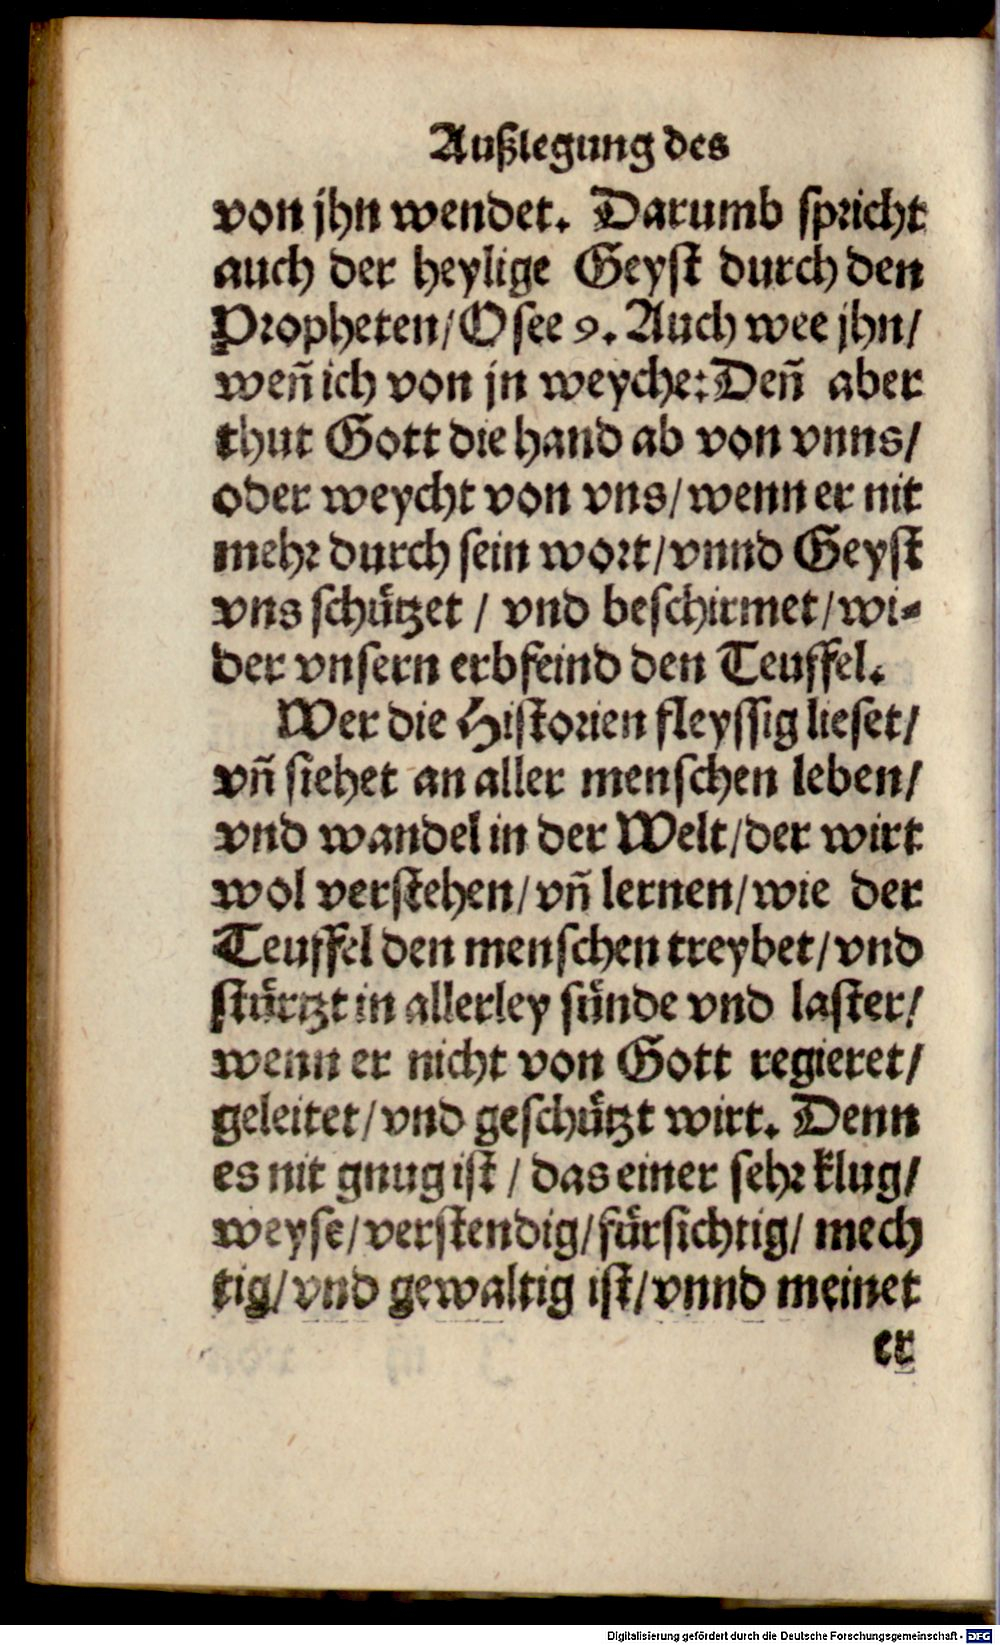 Außlegung des
von jhn wendet. Darumb spricht
auch der heylige Geyst durch den
Propheten/Osee 9. Auch wee jhn/
weñ ich von jn weyche: Deñ aber
thut Gott die hand ab von vnns/
oder weycht von vns/wenn er nit
mehr durch sein wort/vnnd Geyst
vns schützet / vnd beschirmet/wi-
der vnsern erbfeind den Teuffel.
Wer die Historien fleyssig lieset/
vñ siehet an aller menschen leben/
vnd wandel in der Welt/der wirt
wol verstehen/vñ lernen/wie der
Teuffel den menschen treybet/vnd
stürtzt in allerley sünde vnd laster/
wenn er nicht von Gott regieret/
geleitet/vnd geschützt wirt. Denn
es nit gnug ist / das einer sehr klug/
weyse/verstendig/fürsichtig/ mech
tig/vnd gewaltig ist/vnnd meinet
er
Digitalisierung gefördert durch die Deutsche Forschungsgemeinschaft - DFG